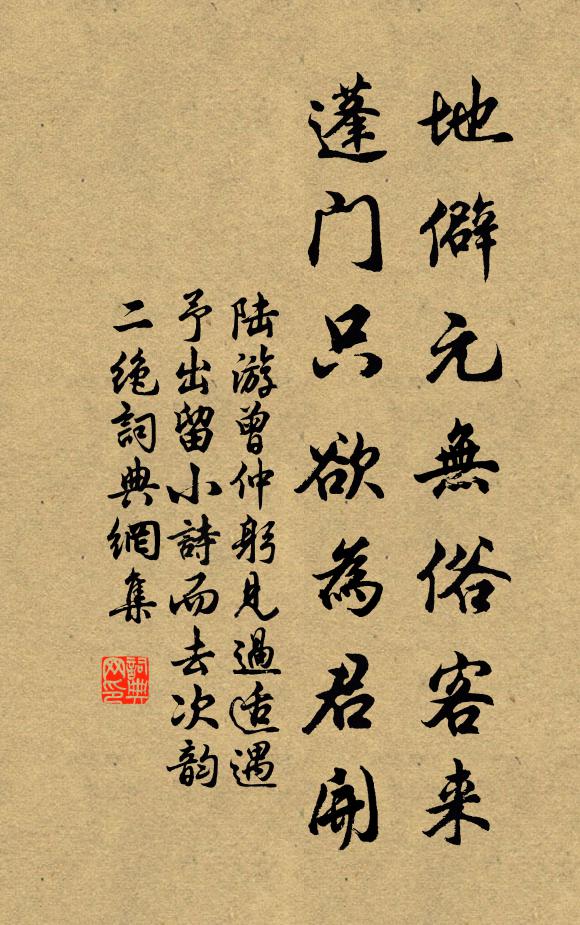 地僻元無俗客来
蓬门只欲為君開
陆游曾仲躬見過适遇
予出留小詩而去次韵
二绝詞典網集
詞典
网印